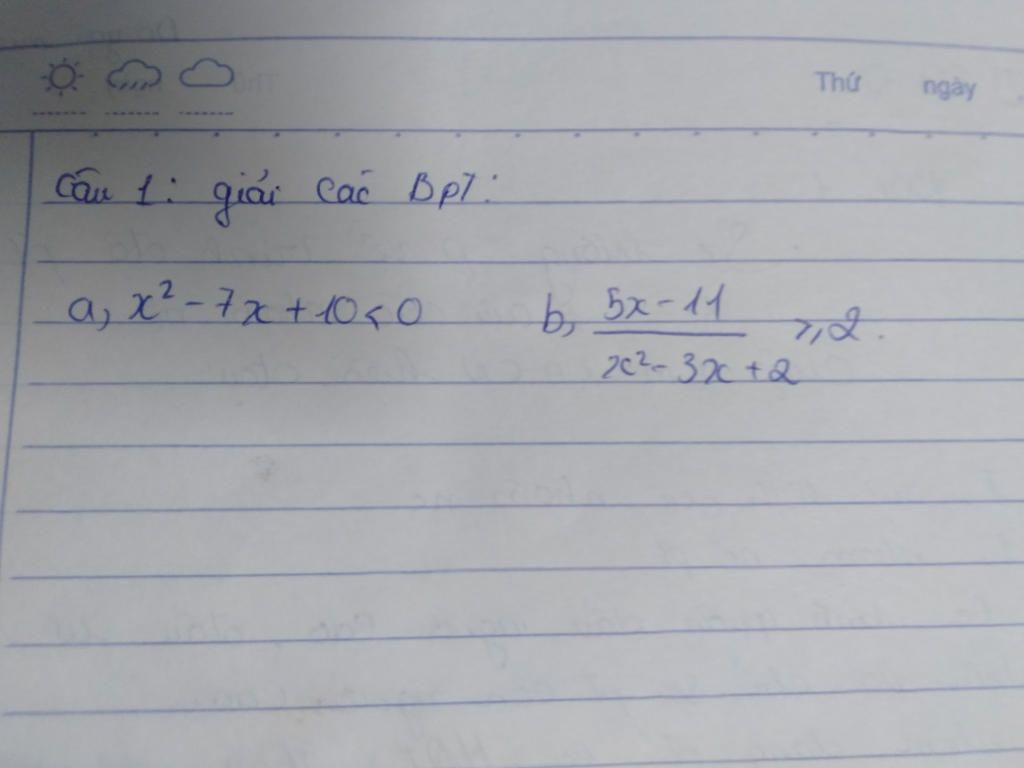 Thứ ngày
Câu 1: giải các BPT:
a, x² - 7x + 10 < 0 b, (5x - 11)/(x² - 3x + 2) ⩾ 2.